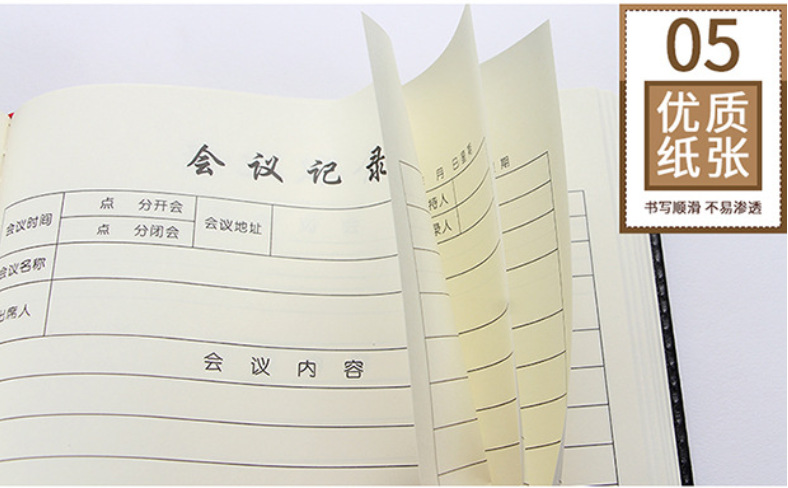 05
优质
纸张
书写顺滑 不易渗透
会议记录
月 日 星期
期
会议时间
点 分开会
点 分闭会
会议地址
持人
录人
会议名称
出席人
会议内容